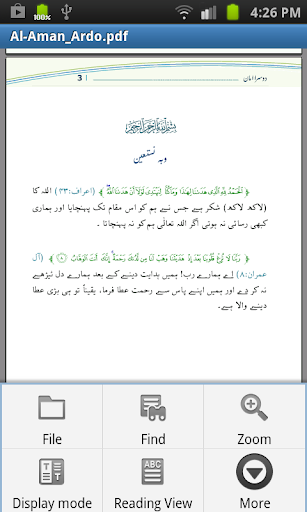 100%
4:26 PM
Al-Aman_Ardo.pdf
دوسرا امان
3
بسم الله الرحمن الرحيم
وبہ نستعین
﴿اَلْحَمْدُ لِلّٰهِ الَّذِىْ هَدٰىنَا لِهٰذَا وَمَا كُنَّا لِنَهْتَدِىَ لَوْلَآ اَنْ هَدٰىنَا اللّٰهُ﴾ (اعراف:۴۳) اللہ کا
(لاکھ لاکھ) شکر ہے جس نے ہم کو اس مقام تک پہنچایا اور ہماری
کبھی رسائی نہ ہوتی اگر اللہ تعالٰی ہم کو نہ پہنچاتا ۔
﴿رَبَّنَا لَا تُزِغْ قُلُوْبَنَا بَعْدَ اِذْ هَدَيْتَنَا وَهَبْ لَنَا مِنْ لَّدُنْكَ رَحْمَةً اِنَّكَ اَنْتَ الْوَهَّابُ ۸﴾ (آل
عمران:۸) اے ہمارے رب! ہمیں ہدایت دینے کے بعد ہمارے دل ٹیڑھے
نہ کر دے اور ہمیں اپنے پاس سے رحمت عطا فرما، یقیناً تو ہی بڑی عطا
دینے والا ہے۔
File
Find
Zoom
Display mode
Reading View
More